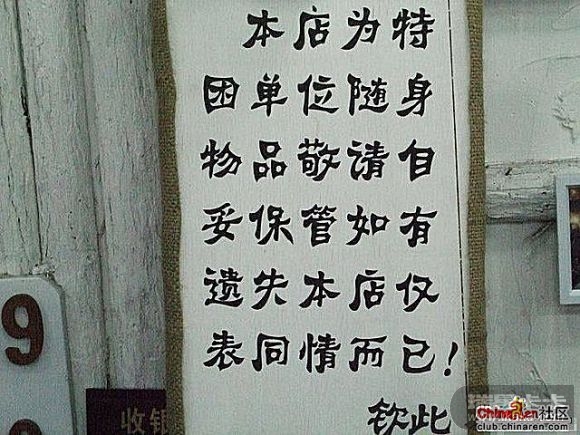 本店为特
困单位随身
物品敬请自
妥保管如有
遗失本店仅
表同情而已！
钦此
9
收银
Chinaren社区
club.chinaren.com